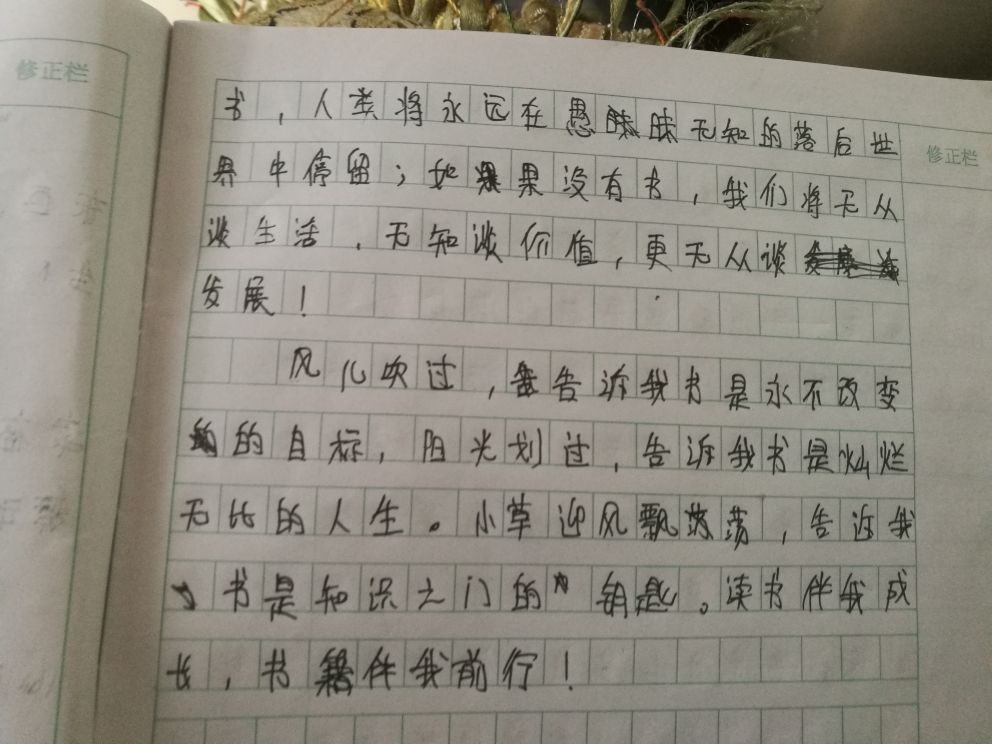 修正栏
书，人类将永远在愚昧无知的落后世
修正栏
界中停留；如果没有书，我们将无从
谈生活，无知谈价值，更无从谈
发展！
风儿吹过，告诉我书是永不改变
的目标，阳光划过，告诉我书是灿烂
无比的人生。小草迎风飘荡，告诉我
书是知识之门的钥匙。读书伴我成
长，书籍伴我前行！